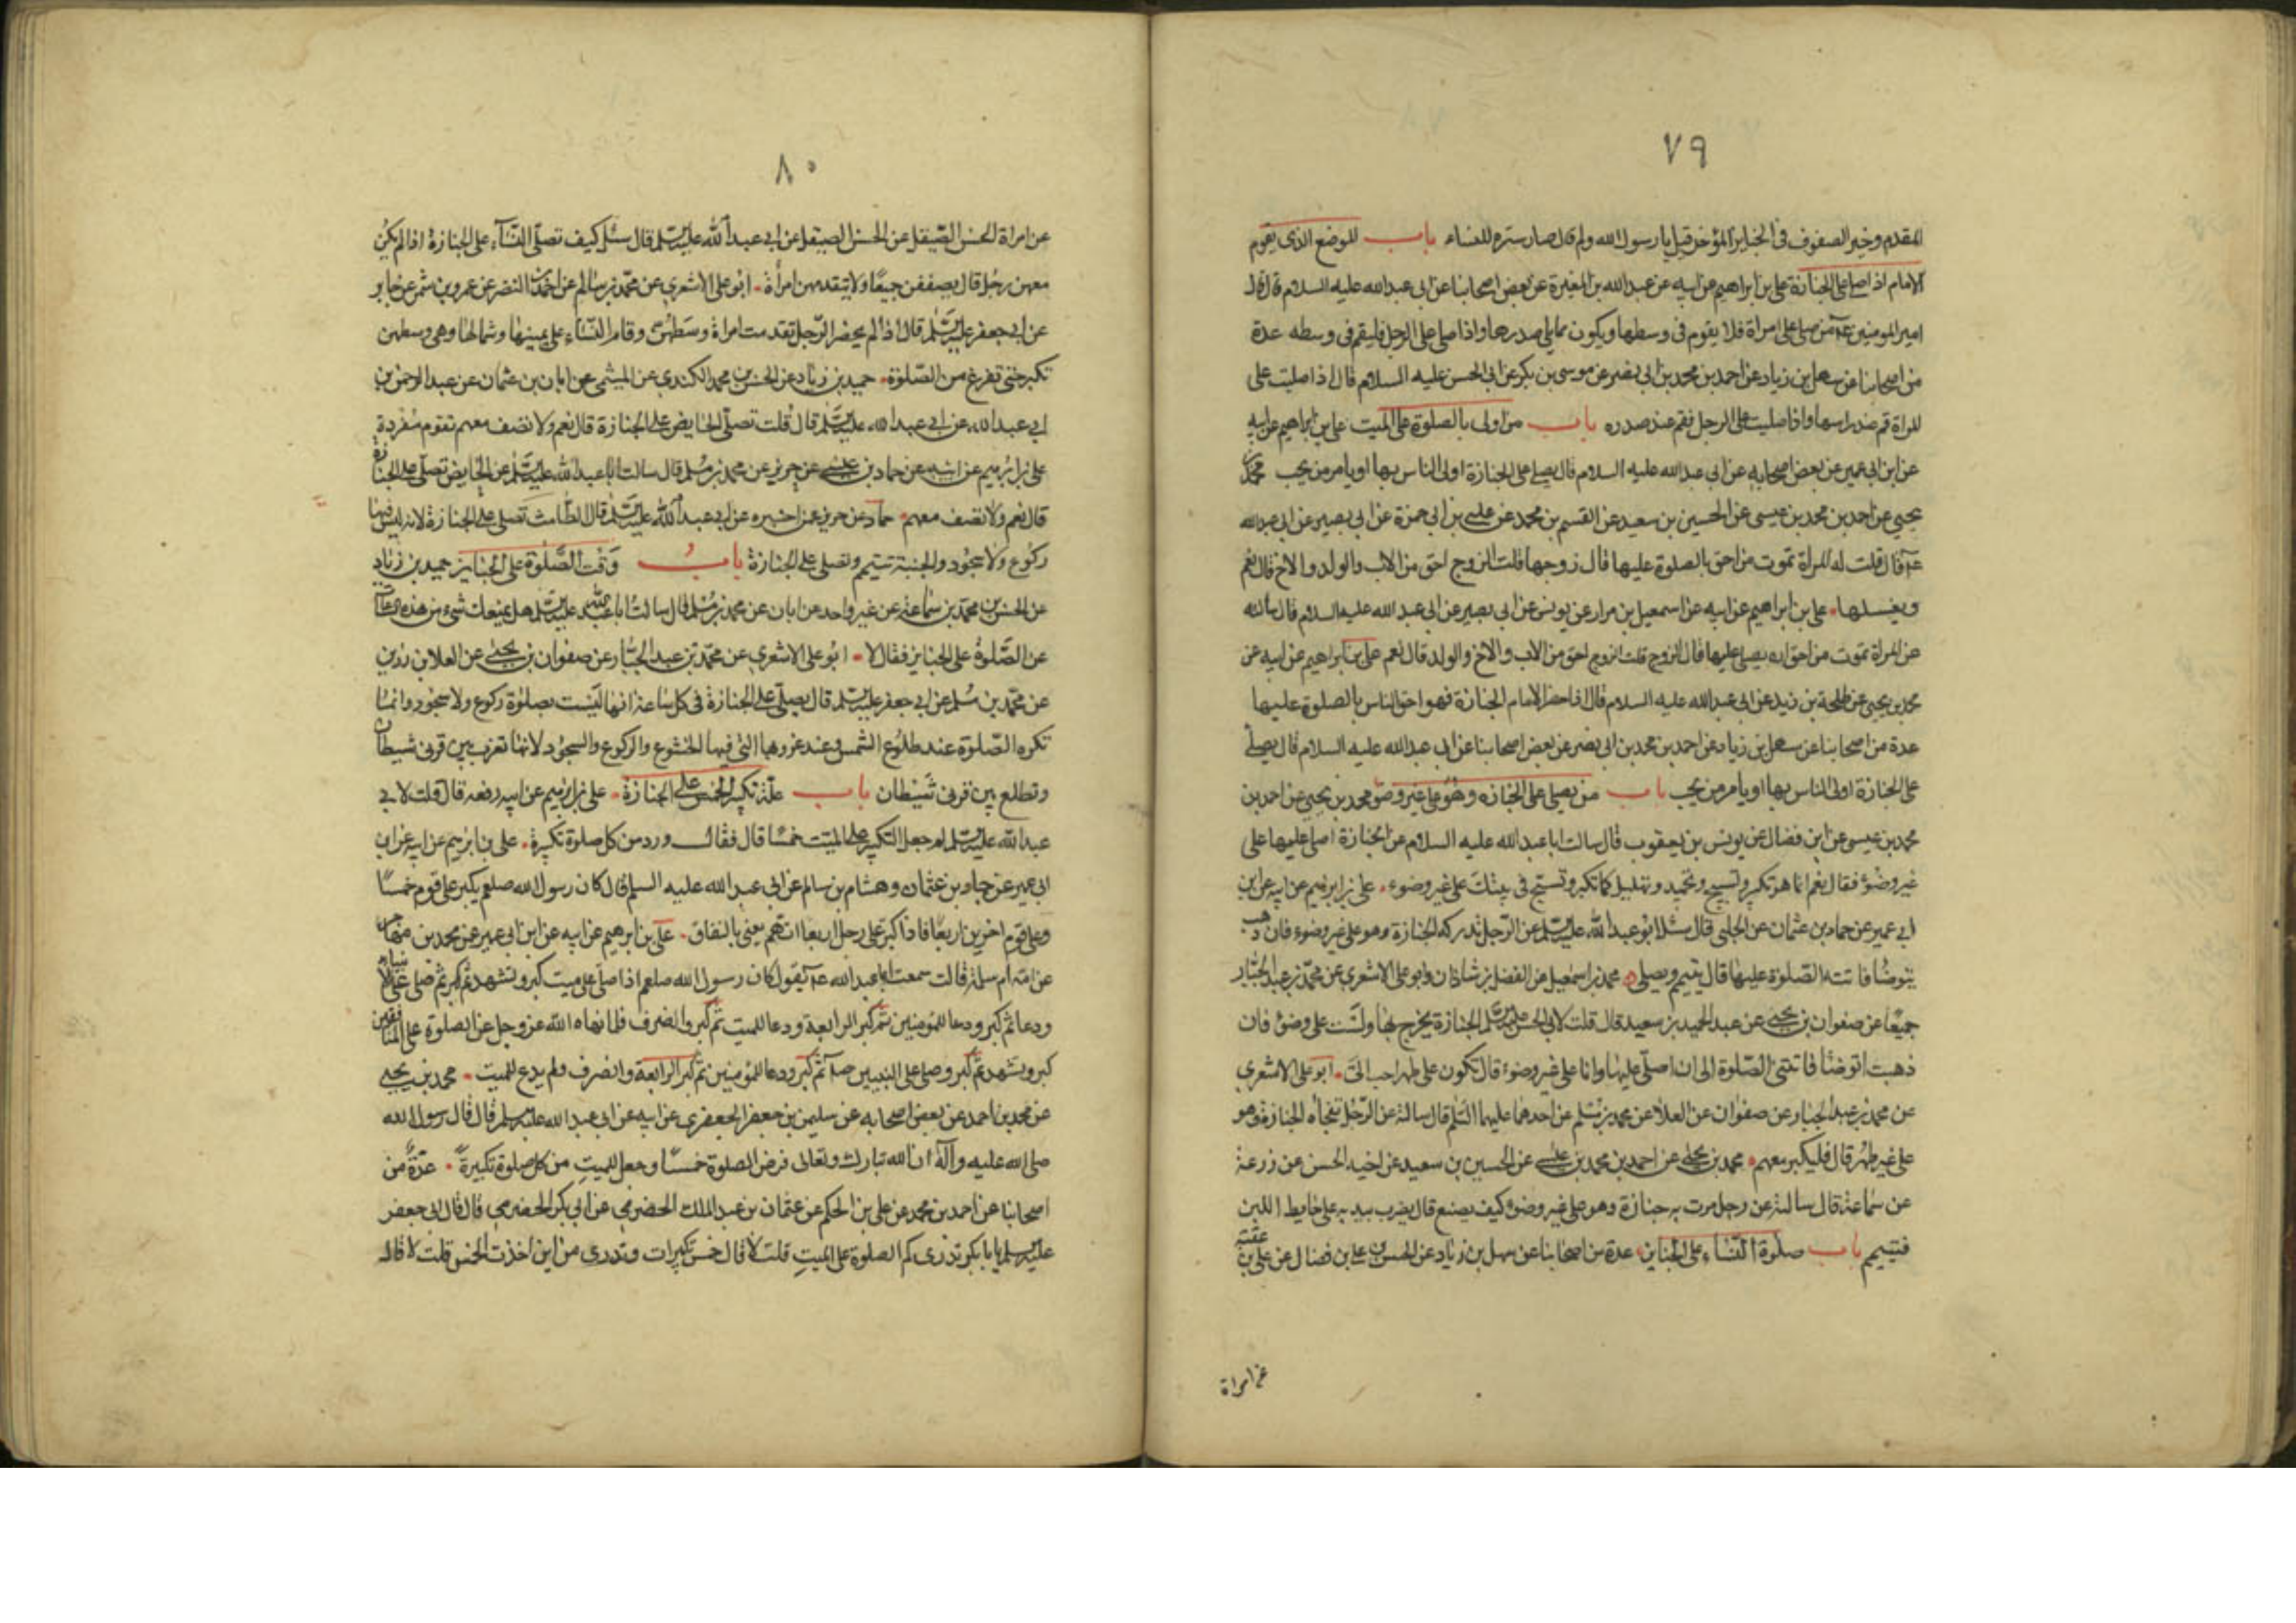 ٧٩
المقدم وخير الصفوف فى الجنايز المؤخر قيل يا رسول الله ولم قال صار سترة للنساء باب الموضع الذى يقوم
الامام اذا صلى على الجنازة على بن ابراهيم عن ابيه عن عبد الله بن المغيرة عن بعض اصحابنا عن ابى عبد الله عليه السلام قال قال
امير المومنين عم من صلى على امراة فلا يقوم فى وسطها ويكون مما يلى صدرها واذا صلى على الرجل فليقم فى وسطه عدة
من اصحابنا عن سهل بن زياد عن احمد بن محمد بن ابى نصر عن موسى بن بكر عن ابى الحسن عليه السلام قال اذا صليت على
المراة قم عند راسها واذا صليت على الرجل فقم عند صدره باب من اولى بالصلوة على الميت على بن ابراهيم عن ابيه
عن ابن ابى عمير عن بعض اصحابه عن ابى عبد الله عليه السلام قال يصلى على الجنازة اولى الناس بها او يامر من يحب محمد بن
يحيى عن احمد بن محمد بن عيسى عن الحسين بن سعيد عن القسم بن محمد عن على بن ابى حمزة عن ابى بصير عن ابى عبد الله
عم قال قلت له المراة تموت من احق بالصلوة عليها قال زوجها قلت الزوج احق من الاب والولد والاخ قال نعم
ويغسلها على بن ابراهيم عن ابيه عن اسمعيل بن مرار عن يونس عن ابى بصير عن ابى عبد الله عليه السلام قال سالته
عن المراة تموت من احق ان يصلى عليها قال الزوج قلت الزوج احق من الاب والاخ والولد قال نعم على بن ابراهيم عن ابيه عن
محمد بن يحيى عن طلحة بن زيد عن ابى عبد الله عليه السلام قال اذا حضر الامام الجنازة فهو احق الناس بالصلوة عليها
عدة من اصحابنا عن سهل بن زياد عن احمد بن محمد بن ابى نصر عن بعض اصحابنا عن ابى عبد الله عليه السلام قال يصلى
على الجنازة اولى الناس بها او يامر من يحب باب من يصلى على الجنازه وهو على غير وضو محمد بن يحيى عن احمد بن
محمد بن عيسى عن ابن فضال عن يونس بن يعقوب قال سالت ابا عبد الله عليه السلام عن الجنازة اصلى عليها على
غير وضوء فقال نعم انما هو تكبر وتسبيح وتحميد وتهليل كما تكبر وتسبح فى بيتك على غير وضوء على بن ابرهيم عن ابيه عن ابن
ابى عمير عن حماد بن عثمان عن الحلبى قال سئل ابو عبد الله عليه السلم عن الرجل تدركه الجنازة وهو على غير وضوء فان ذهب
يتوضا فاتته الصلوة عليها قال يتيمم ويصلى محمد بن اسمعيل عن الفضل بن شاذان وابو على الاشعرى عن محمد بن عبد الجبار
جميعا عن صفوان بن يحيى عن عبد الحميد بن سعيد قال قلت لابى الحسن عليه السلم الجنازة يخرج بها ولست على وضوء فان
ذهبت اتوضا فاتتنى الصلوة الى ان اصلى عليها وانا على غير وضوء قال تكون على طهر احب الى ابو على الاشعرى
عن محمد بن عبد الجبار عن صفوان عن العلا عن محمد بن مسلم عن احدهما عليهما السلم قال سالته عن الرجل تفجاه الجنازة وهو
على غير طهر قال فليكبر معهم محمد بن يحيى عن احمد بن محمد بن عيسى عن الحسين بن سعيد عن اخيه الحسن عن زرعة
عن سماعة قال سالته عن رجل مرت به جنازة وهو على غير وضوء كيف يصنع قال يضرب بيديه على حايط اللبن
فتيمم باب صلوة النساء على الجنايز عدة من اصحابنا عن سهل بن زياد عن الحسن بن على بن فضال عن على بن عقبة
عن امراة
٨٠
عن امراة الحسن الصيقل عن الحسن الصيقل عن ابى عبد الله عليه السلم قال سئل كيف تصلى النساء على الجنازة اذا لم يكن
معهن رجل قال يصففن جميعا ولا تتقدمهن امراة ابو على الاشعرى عن محمد بن سالم عن احمد بن النضر عن عمرو بن شمر عن جابر
عن ابى جعفر عليه السلم قال اذا لم يحضر الرجل تقدمت امراة وسطهن وقام النساء على يمينها وشمالها وهى وسطهن
تكبر حتى تفرغ من الصلوة حميد بن زياد عن الحسن بن محمد الكندى عن الميثمى عن ابان بن عثمان عن عبد الرحمن بن
ابى عبد الله عن ابى عبد الله عليه السلم قال قلت تصلى الحايض على الجنازة قال نعم ولا تصف معهم تقوم مفردة
على بن ابرهيم عن ابيه عن حماد بن عيسى عن حريز عن محمد بن مسلم قال سالت ابا عبد الله عليه السلم عن الحايض تصلى على الجنازة
قال نعم ولا تصف معهم حماد عن حريز عمن اخبره عن ابى عبد الله عليه السلم قال الطامث تصلى على الجنازة لانه ليس فيها
ركوع ولا سجود والجنبة تتيمم وتصلى على الجنازة باب وقت الصلوة على الجنايز حميد بن زياد
عن الحسن بن محمد بن سماعة عن غير واحد عن ابان عن محمد بن مسلم قال سالت ابا عبد الله عليه السلم هل يمنعك شىء من هذه الساعات
عن الصلوة على الجنايز فقال لا ابو على الاشعرى عن محمد بن عبد الجبار عن صفوان بن يحيى عن العلا بن رزين
عن محمد بن مسلم عن ابى جعفر عليه السلم قال يصلى على الجنازة فى كل ساعة انها ليست بصلوة ركوع ولا سجود وانما
تكره الصلوة عند طلوع الشمس وعند غروبها التى فيها الخشوع والركوع والسجود لانها تغرب بين قرنى شيطان
وتطلع بين قرنى شيطان باب علة تكبير الخمس على الجنازة على بن ابرهيم عن ابيه رفعه قال قلت لابى
عبد الله عليه السلم لم جعل التكبير على الميت خمسا قال فقال ورد من كل صلوة تكبيرة على بن ابرهيم عن ابيه عن ابن
ابى عمير عن حماد بن عثمان وهشام بن سالم عن ابى عبد الله عليه السلم قال كان رسول الله صلعم يكبر على قوم خمسا
وعلى قوم اخرين اربعا فاذا كبر على رجل اربعا اتهم يعنى بالنفاق على بن ابرهيم عن ابيه عن ابن ابى عمير عن محمد بن مهاجر
عن امه ام سلمة قالت سمعت ابا عبد الله عم يقول كان رسول الله صلعم اذا صلى على ميت كبر وتشهد ثم كبر ثم صلى على الانبياء
ودعا ثم كبر ودعا للمؤمنين ثم كبر الرابعة ودعا للميت ثم كبر وانصرف فلما نهاه الله عز وجل عن الصلوة على المنافقين
كبر وتشهد ثم كبر وصلى على النبيين صلى ثم كبر ودعا للمؤمنين ثم كبر الرابعة وانصرف ولم يدع للميت محمد بن يحيى
عن محمد بن احمد عن بعض اصحابه عن سليمن بن جعفر الجعفرى عن ابيه عن ابى عبد الله عليه السلم قال قال رسول الله
صلى الله عليه وآله ان الله تبارك وتعالى فرض الصلوة خمسا وجعل للميت من كل صلوة تكبيرة عدة من
اصحابنا عن احمد بن محمد عن على بن الحكم عن عثمان بن عبد الملك الحضرمى عن ابى بكر الحضرمى قال قال ابى جعفر
عليه السلم يا بابكر تدرى كم الصلوة على الميت قلت لا قال خمس تكبيرات وتدرى من اين اخذت الخمس قلت لا قال